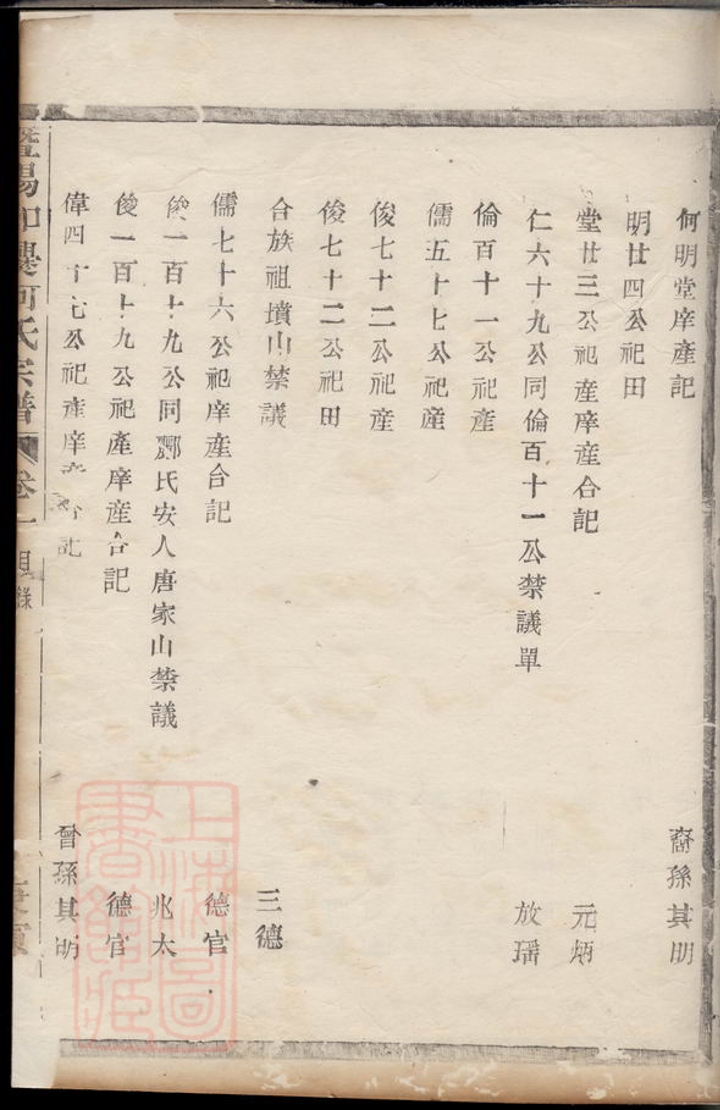 何明堂庠產記 裔孫其明
明廿四公祀田
堂廿三公祀產庠產合記 元炳
仁六十九公同倫百十一公禁議單 放瑶
倫百十一公祀產
儒五十七公祀産
俊七十二公祀産
俊七十二公祀田
合族祖墳山禁議 三德
儒七十六公祀庠産合記 德官
俊一百十九公同酈氏安人唐家山禁議 兆太
俊一百十九公祀產庠産合記 德官
偉四十七公祀産庠 合記 曾孫其明
暨陽 何氏宗譜 卷一 目錄
上海圖書館藏